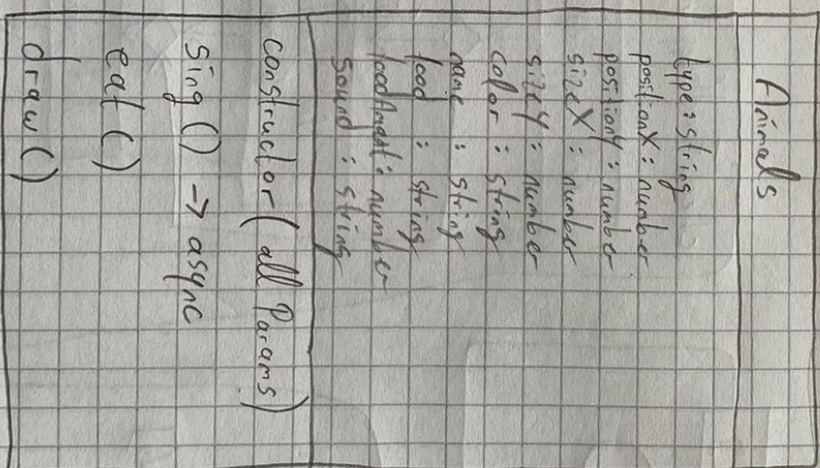 Animals
type: string
positionX: number
positionY: number
sizeX: number
sizeY: number
color: string
name: string
food: string
foodAmont: number
sound: string
constructor (all Params)
sing () -> async
eat ()
draw ()